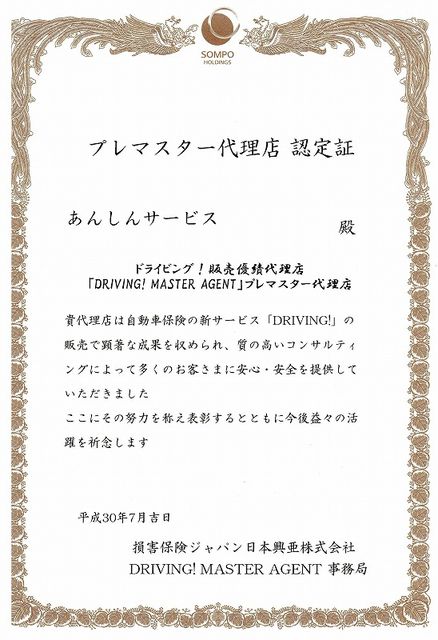 SOMPO
HOLDINGS
プレマスター代理店 認定証
あんしんサービス
殿
ドライビング！販売優績代理店
「DRIVING! MASTER AGENT」プレマスター代理店
貴代理店は自動車保険の新サービス「DRIVING!」の
販売で顕著な成果を収められ、質の高いコンサルティ
ングによって多くのお客さまに安心・安全を提供して
いただきました
ここにその努力を称え表彰するとともに今後益々の活
躍を祈念します
平成30年7月吉日
損害保険ジャパン日本興亜株式会社
DRIVING! MASTER AGENT 事務局